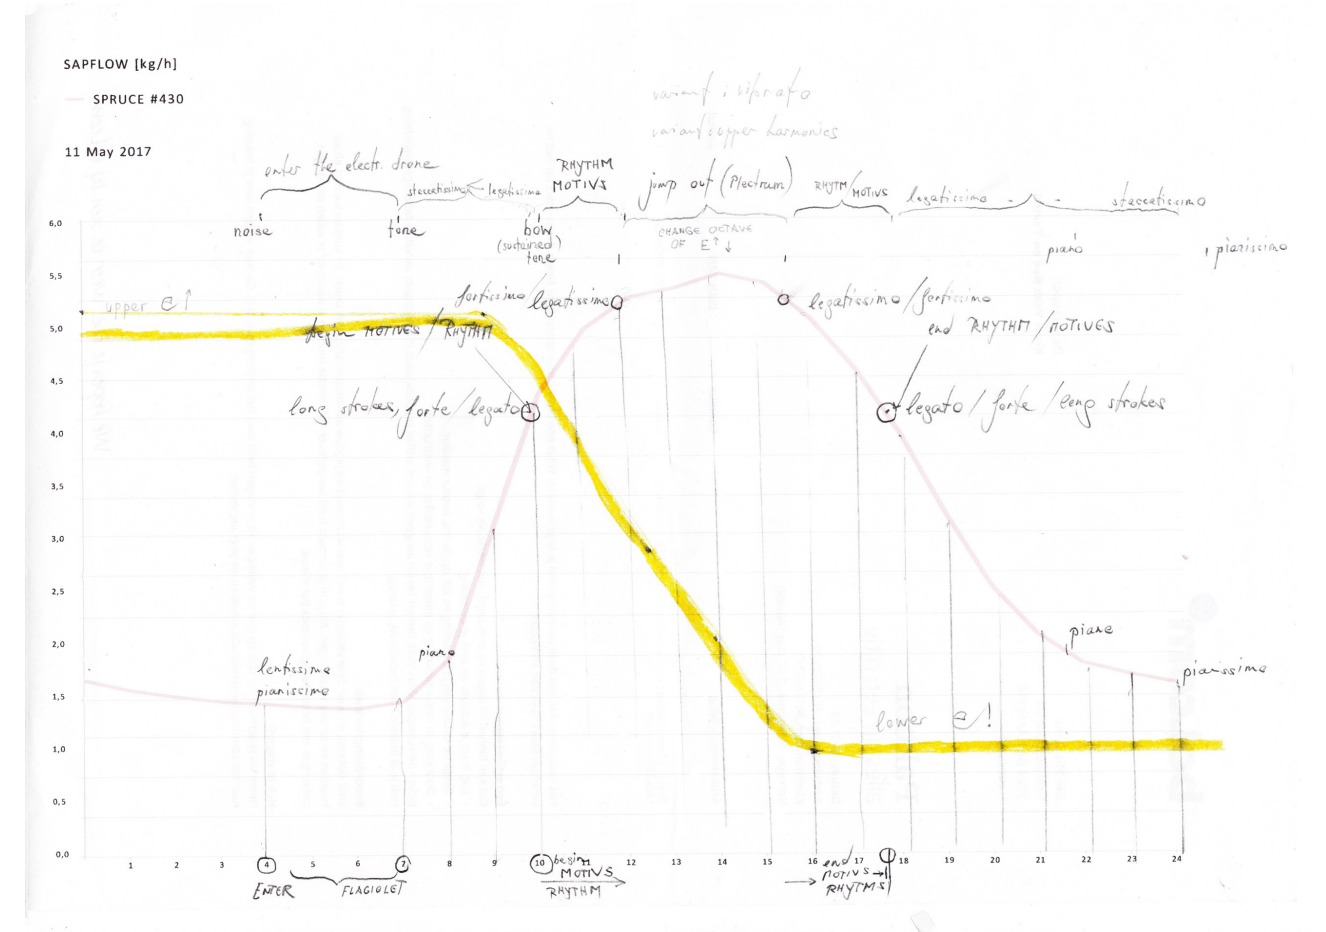 SAPFLOW [kg/h]
SPRUCE #430
11 May 2017
variant: vibrato
variant: upper harmonics
enter the electr. drone
staccatissimo
legatissimo
RHYTHM
MOTIVS
jump out (Plectrum)
RHYTM/MOTIVS
legatissimo
staccatissimo
noise
tone
bow
(sustained)
tone
CHANGE OCTAVE
OF E
piano
pianissimo
6,0
5,5
5,0
4,5
4,0
3,5
3,0
2,5
2,0
1,5
1,0
0,5
0,0
upper e
fortissimo/legatissimo
legatissimo/fortissimo
begin MOTIVES/RHYTHM
end RHYTHM/MOTIVES
long strokes, forte/legato
legato/forte/long strokes
lentissimo
pianissimo
piano
piano
pianissimo
lower e!
1 2 3 4 5 6 7 8 9 10 12 13 14 15 16 17 18 19 20 21 22 23 24
ENTER
FLAGIOLET
begin
MOTIVS
RHYTHM
end
MOTIVS
RHYTMS